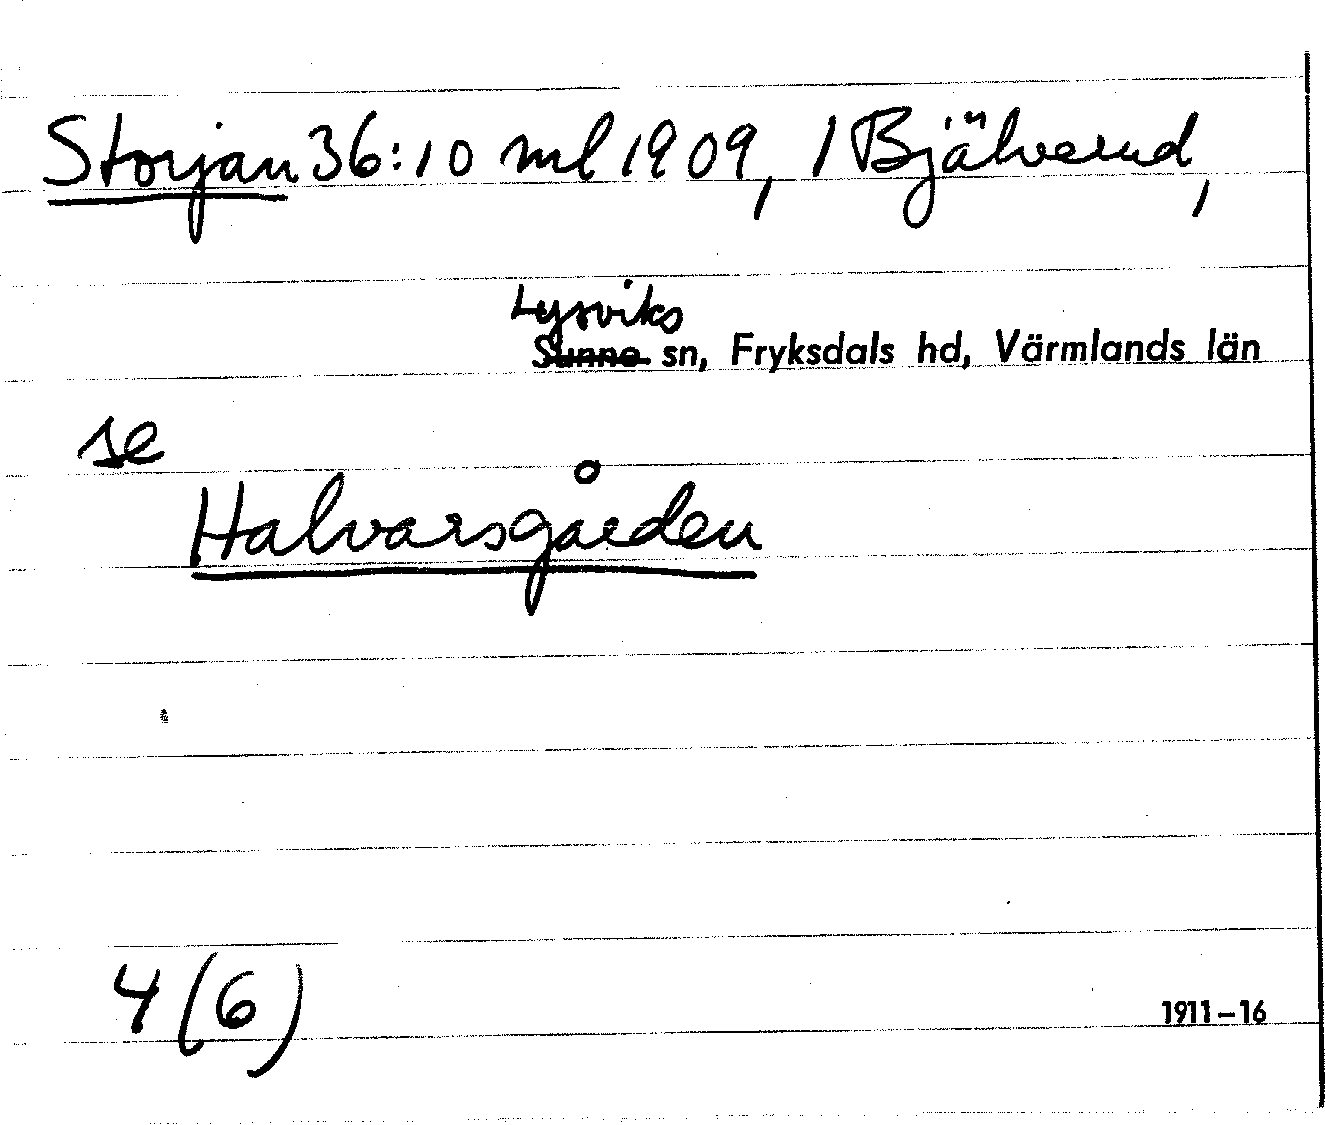 Storjan 36:10 ml 1909, / Bjälverud,
Lysviks
Sunne sn, Fryksdals hd, Värmlands län
se
Halvarsgården
4 (6)
1911–16